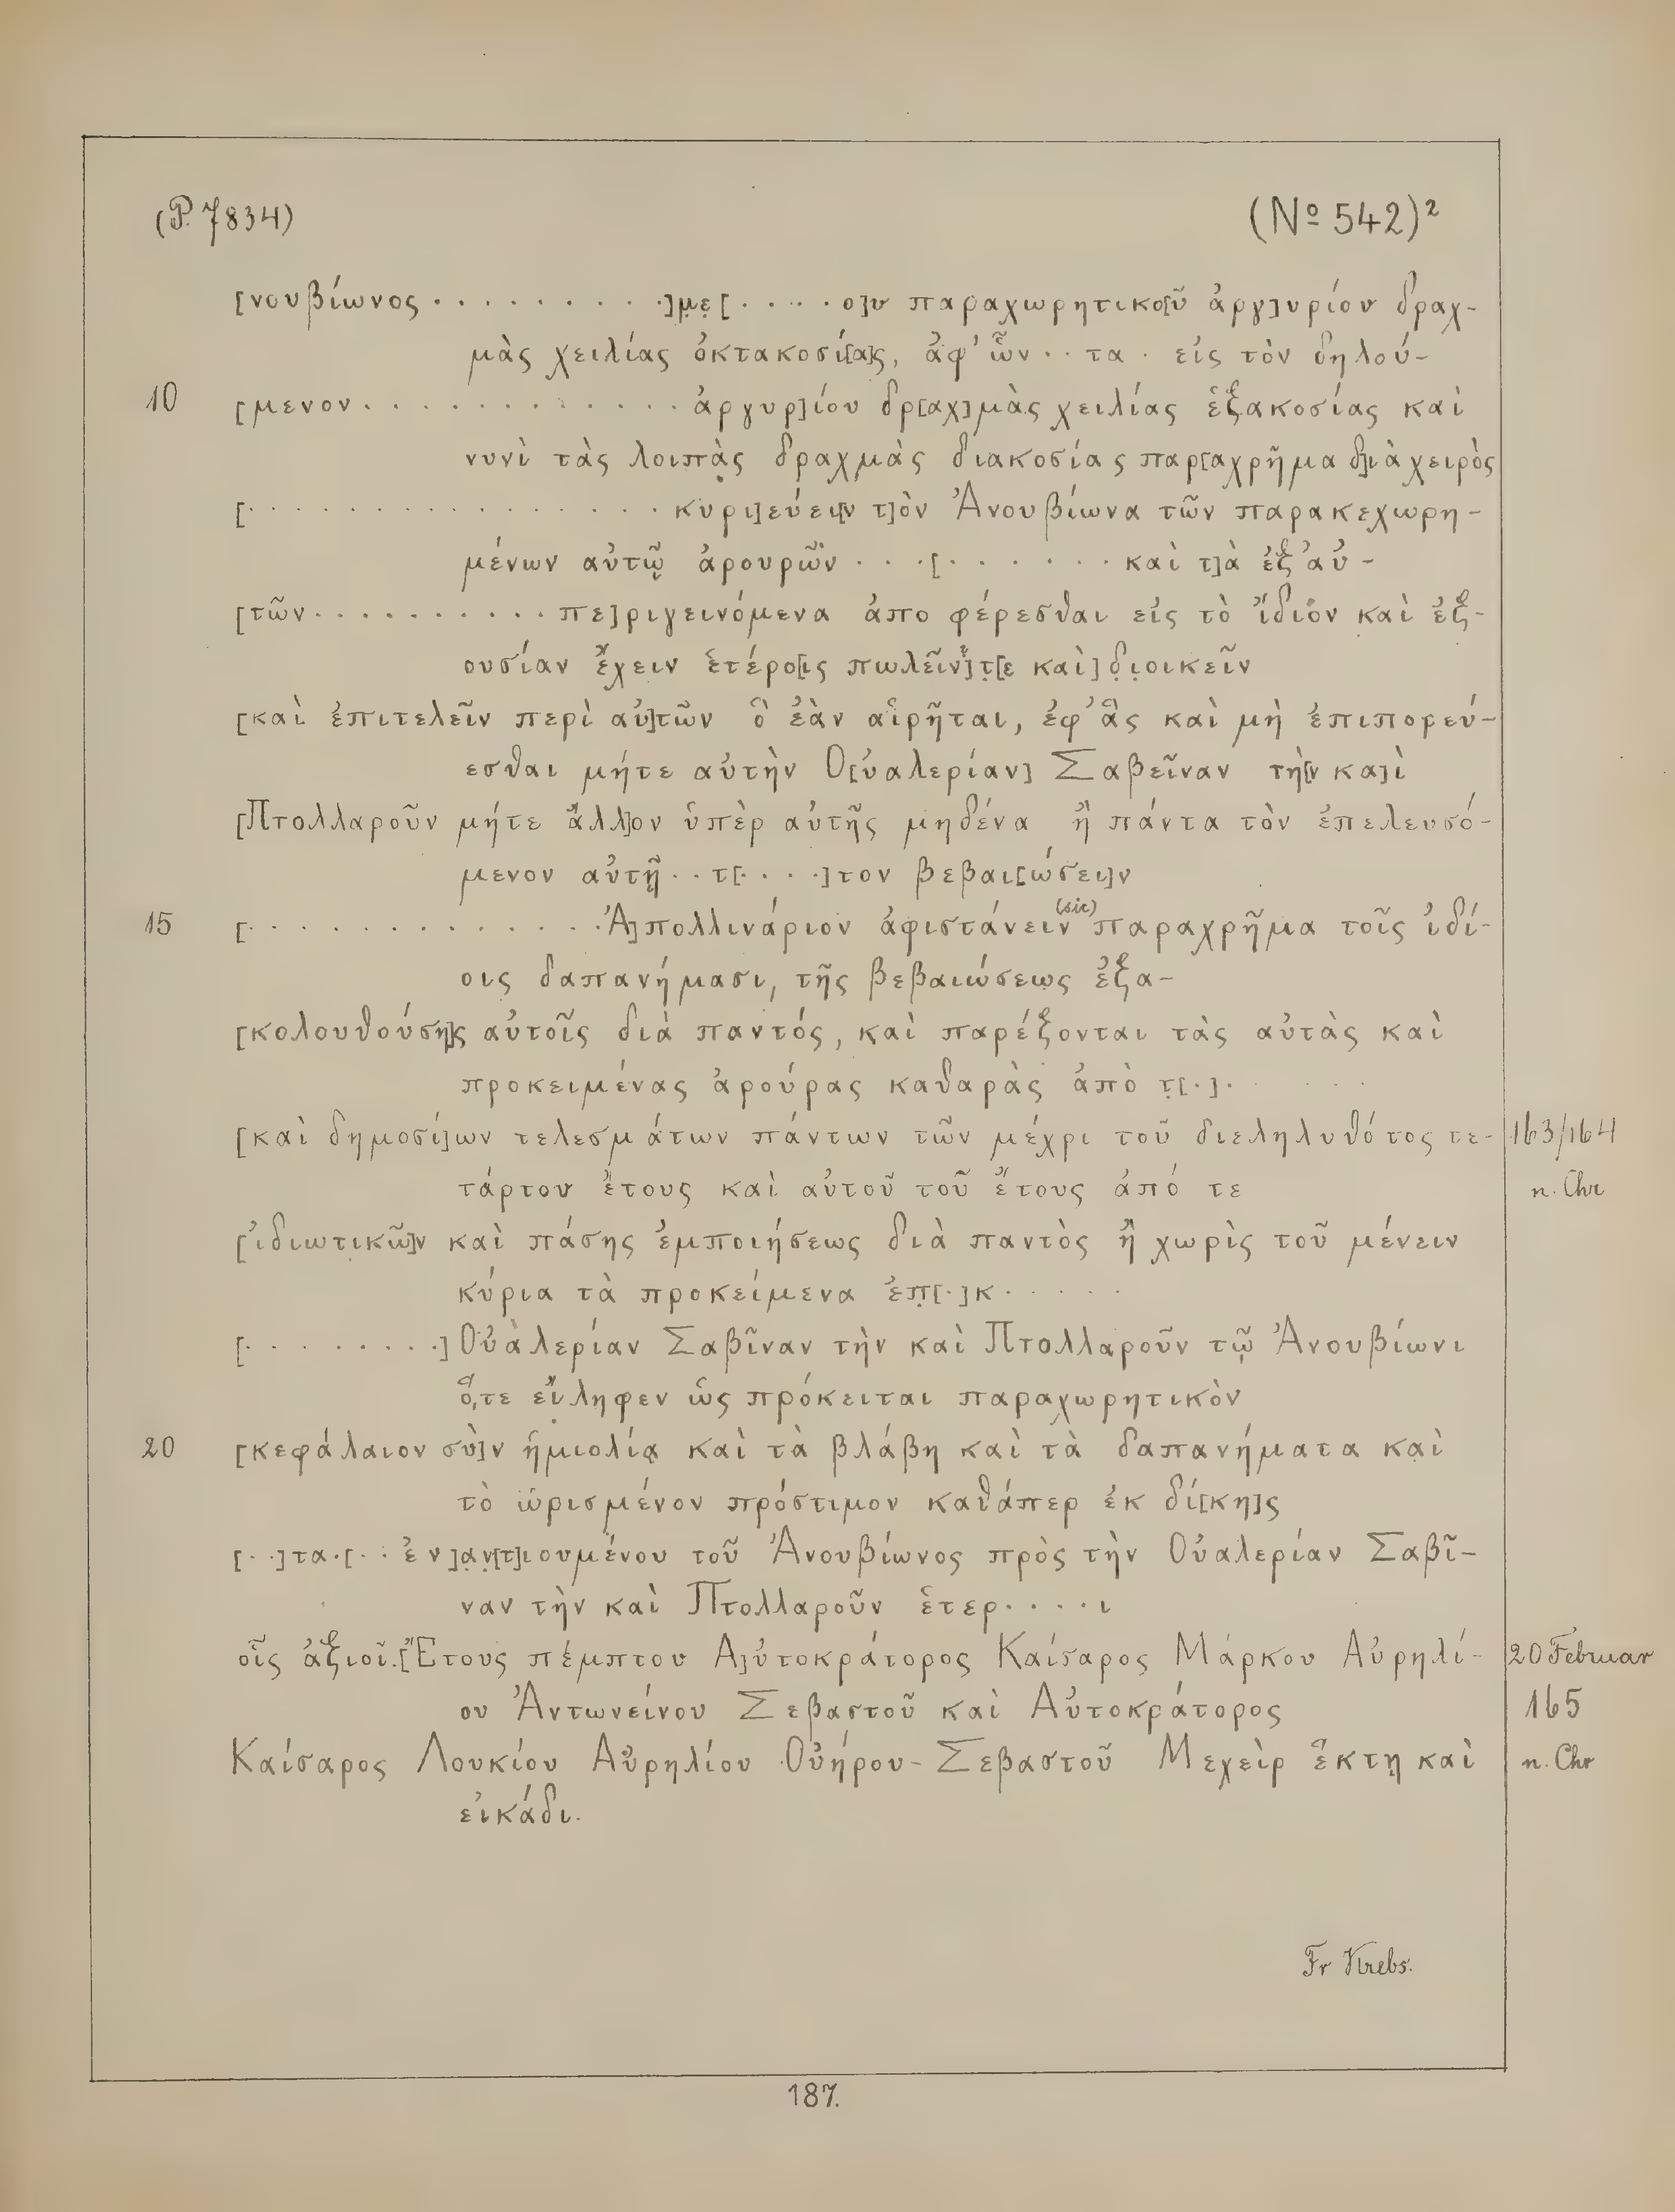 (P. 7834) (Nº 542)²
[νουβίωνος · · · · · · · · · ·]μ̣ε̣[· · · · · ο]υ παραχωρητικο[ῦ ἀργ]υρίου δραχ-
μὰς χειλίας ὀκτακοσί[α]ς, ἀφ' ὧν · · τα · εἰς τὸν δηλού-
10 [μενον · · · · · · · · · · · · · ἀργυρ]ίου δρ[αχ]μὰς χειλίας ἑξακοσίας καὶ
νυνὶ τὰς λοιπὰς δραχμὰς διακοσίας παρ[αχρῆμα δ]ιὰ χειρὸς
[· · · · · · · · · · · · · · · · · κυρι]εύει[ν τ]ὸν Ἀνουβίωνα τῶν παρακεχωρη-
μένων αὐτῷ ἀρουρῶν · · · [· · · · · · · καὶ τ]ὰ ἐξ αὐ-
[τῶν · · · · · · · · · · πε]ριγεινόμενα ἀποφέρεσθαι εἰς τὸ ἴδιον καὶ ἐξ-
ουσίαν ἔχειν ἑτέρο[ις πωλεῖν] τ̣[ε καὶ] δ̣ι̣οικεῖν
[καὶ ἐπιτελεῖν περὶ αὐ]τῶν ὃ ἐὰν αἱρῆται, ἐφ' ἃς καὶ μὴ ἐπιπορεύ-
εσθαι μήτε αὐτὴν Ο[ὐαλερίαν] Σαβεῖναν τὴ[ν κα]ὶ
[Πτολλαροῦν μήτε ἄλλ]ον ὑπὲρ αὐτῆς μηδένα ἢ πάντα τὸν ἐπελευσό-
μενον αὐτῇ · · τ[· · · ·]τον βεβαι[ώσει]ν
15 [· · · · · · · · · · · · · · Ἀ]πολλινάριον ἀφιστάνειν (sic) παραχρῆμα τοῖς ἰδί-
οις δαπανήμασι, τῆς βεβαιώσεως ἐξα-
[κολουθούση]ς αὐτοῖς διὰ παντός, καὶ παρέξονται τὰς αὐτὰς καὶ
προκειμένας ἀρούρας καθαρὰς ἀπὸ τ̣[·] ·
[καὶ δημοσί]ων τελεσμάτων πάντων τῶν μέχρι τοῦ διεληλυθότος τε- 163/164
τάρτου ἔτους καὶ αὐτοῦ τοῦ ἔτους ἀπό τε n. Chr
[ἰδιωτικῶ]ν καὶ πάσης ἐμποιήσεως διὰ παντὸς ἢ χωρὶς τοῦ μένειν
κύρια τὰ προκείμενα ἐπ̣[·]κ · · · · ·
[· · · · · · · · ·] Οὐαλερίαν Σαβῖναν τὴν καὶ Πτολλαροῦν τῷ Ἀνουβίωνι
ὅ,τε εἴληφεν ὡς πρόκειται παραχωρητικὸν
20 [κεφάλαιον σὺ]ν ἡμιολίᾳ καὶ τὰ βλάβη καὶ τὰ δαπανήματα καὶ
τὸ ὡρισμένον πρόστιμον καθάπερ ἐκ δί[κη]ς
[· ·]τα·[· · ἐν]α̣ν̣[τ]ιουμένου τοῦ Ἀνουβίωνος πρὸς τὴν Οὐαλερίαν Σαβῖ-
ναν τὴν καὶ Πτολλαροῦν ἑτερ · · · · ι
οἷς ἀξιοῖ. [Ἔτους πέμπτου Α]ὐτοκράτορος Καίσαρος Μάρκου Αὐρηλί- 20 Februar
ου Ἀντωνείνου Σεβαστοῦ καὶ Αὐτοκράτορος 165
Καίσαρος Λουκίου Αὐρηλίου Οὐήρου Σεβαστοῦ Μεχεὶρ ἕκτῃ καὶ n. Chr
εἰκάδι.
Fr Krebs.
187.